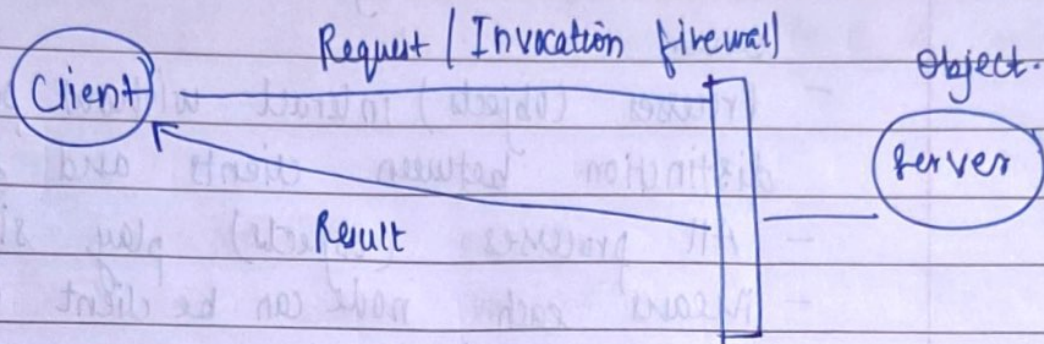 Request / Invocation firewall
Object.
Client
Server
Result